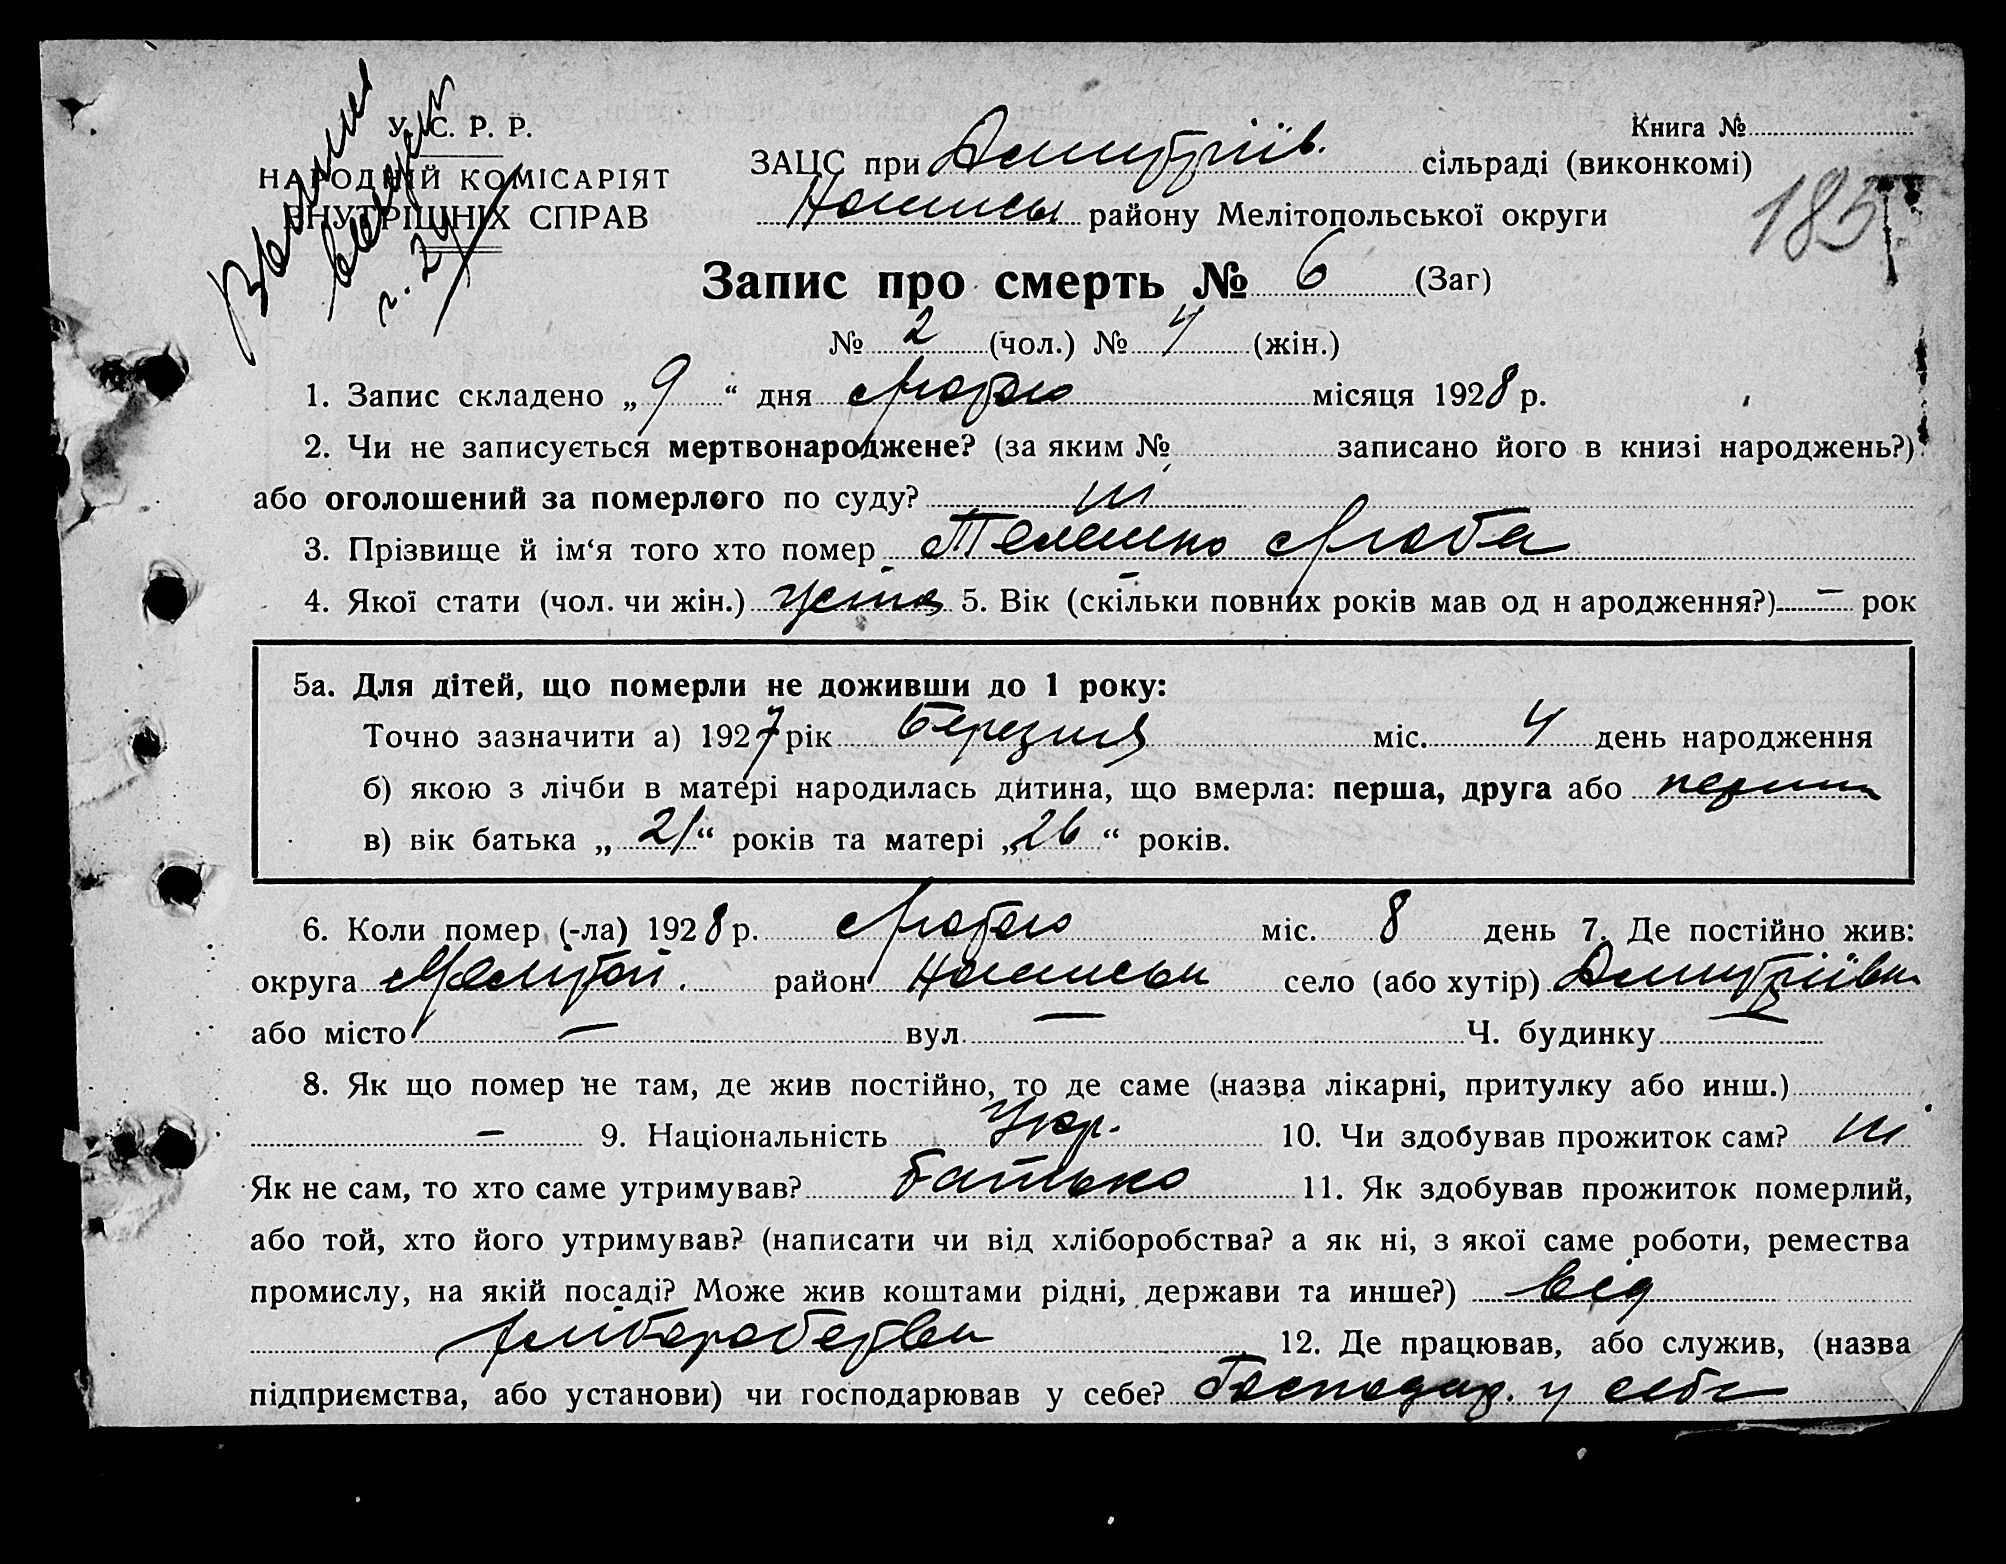 У. С. Р. Р.
НАРОДНІЙ КОМІСАРІЯТ
ВНУТРІШНІХ СПРАВ
Книга №
ЗАЦС при Дмитріїв. сільраді (виконкомі)
району Мелітопольської округи
185
Запис про смерть № 6 (Заг)
№ 2 (чол.) № 4 (жін.)
1. Запис складено „ 9 “ дня Лютого місяця 1928 р.
2. Чи не записується мертвонароджене? (за яким № записано його в книзі народжень?)
або оголошений за померлого по суду? ні
3. Прізвище й ім‘я того хто помер Телешко Люба
4. Якої стати (чол. чи жін.) 5. Вік (скільки повних років мав од н ародження?) — рок
5а. Для дітей, що померли не доживши до 1 року:
Точно зазначити а) 1927 рік Березня міс. 4 день народження
б) якою з лічби в матері народилась дитина, що вмерла: перша, друга або перша
в) вік батька „ 21 “ років та матері „ 26 “ років.
6. Коли помер (-ла) 1928 р. Лютого міс. 8 день 7. Де постійно жив:
округа Мелітоп. район село (або хутір) Дмитріївка
або місто — вул. — Ч. будинку —
8. Як що помер не там, де жив постійно, то де саме (назва лікарні, притулку або инш.)
— 9. Національність Укр. 10. Чи здобував прожиток сам? ні
Як не сам, то хто саме утримував? батько 11. Як здобував прожиток померлий,
або той, хто його утримував? (написати чи від хліборобства? а як ні, з якої саме роботи, ремества
промислу, на якій посаді? Може жив коштами рідні, держави та инше?) від
хліборобства 12. Де працював, або служив, (назва
підприємства, або установи) чи господарював у себе? Господар. у себе